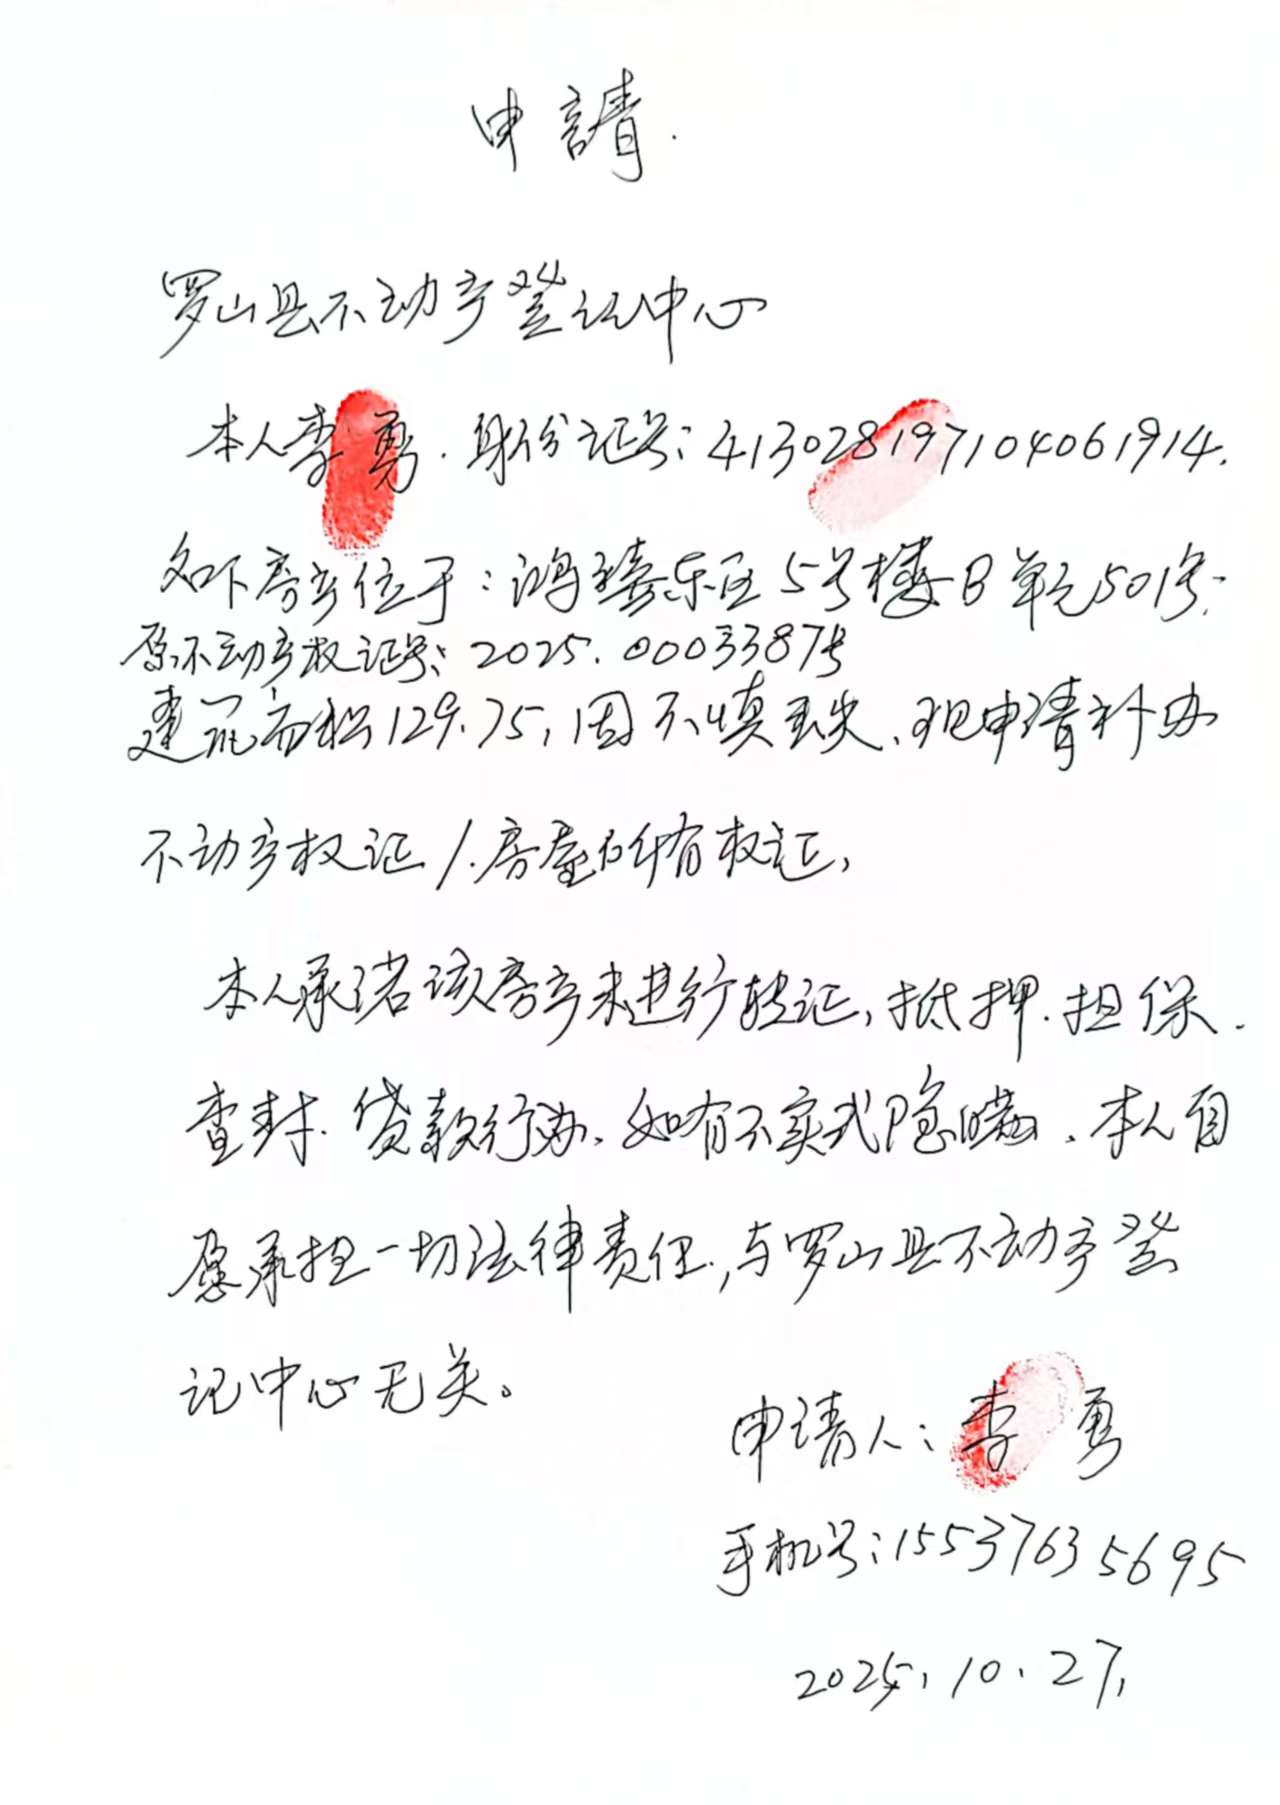 申請.
罗山县不动产登记中心
本人李勇.身份证号:413028197104061914.
名下房产位于:鸿臻东区5号楼B单元501号.
原不动产权证号:2025.0003387号
建筑面积129.75,因不慎丢失、现申请补办
不动产权证/.房屋所有权证,
本人承诺该房产未进行转让,抵押.担保.
查封.贷款行为.如有不实或隐瞒.本人自
愿承担一切法律责任.,与罗山县不动产登
记中心无关。
申请人:李勇
手机号:15537635695
2025.10.27,